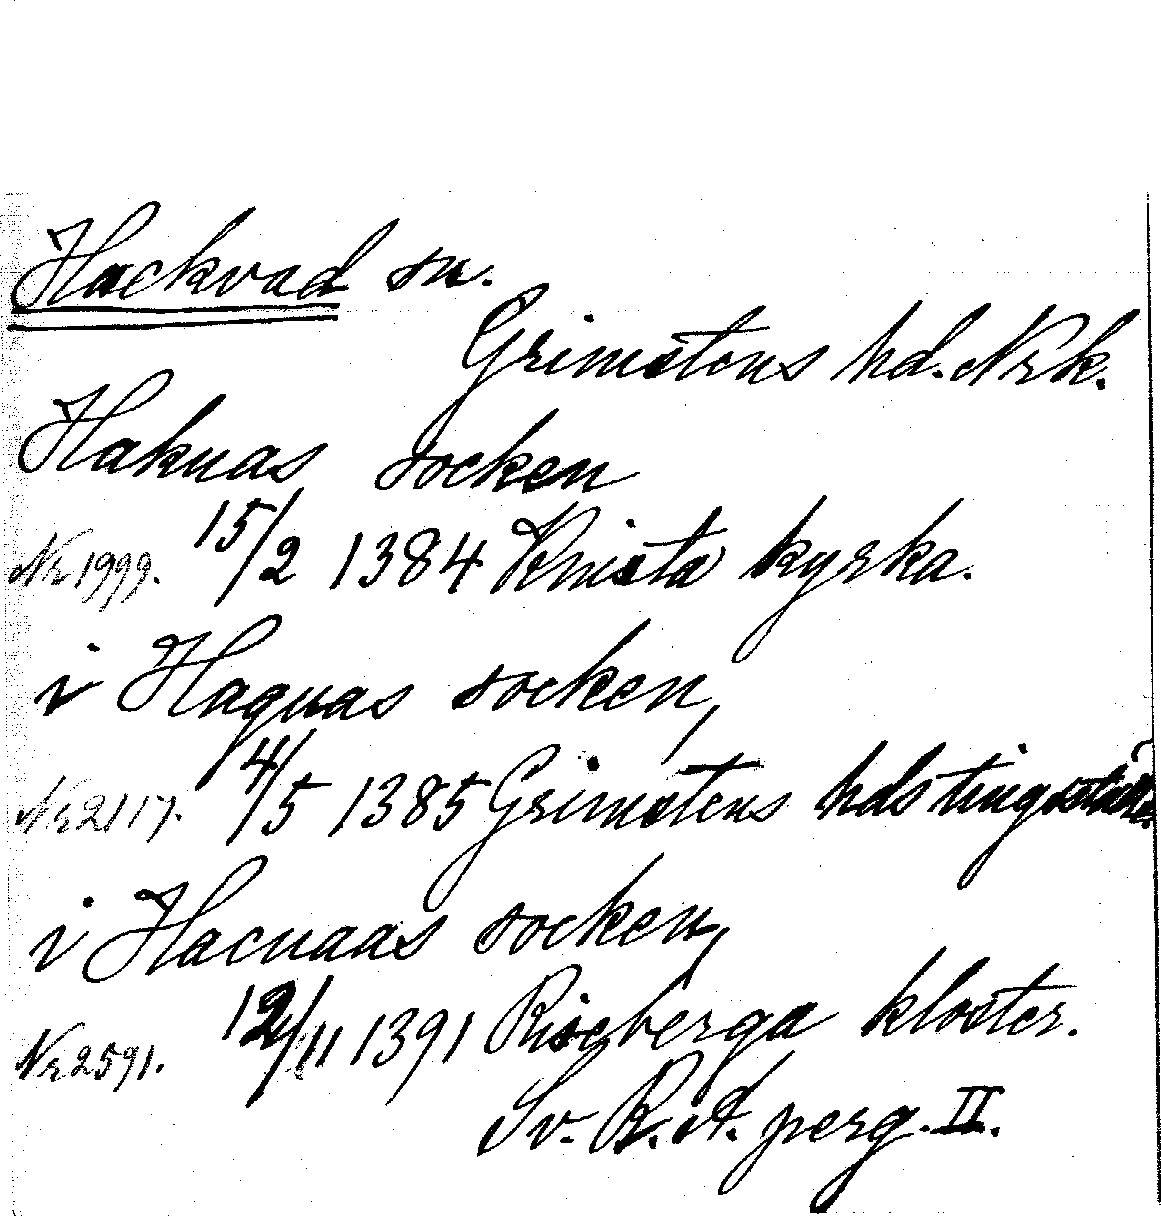 Hackvad sn.
Grimstens hd. Nrk.
Hakuas socken
Nr 1999. 15/2 1384 Knista kyrka.
i Haquas socken,
Nr 2117. 14/5 1385 Grimstens hds tingställe.
i Hacuaas socken,
Nr 2591. 12/11 1391 Riseberga kloster.
Sv. R. A. perg. II.